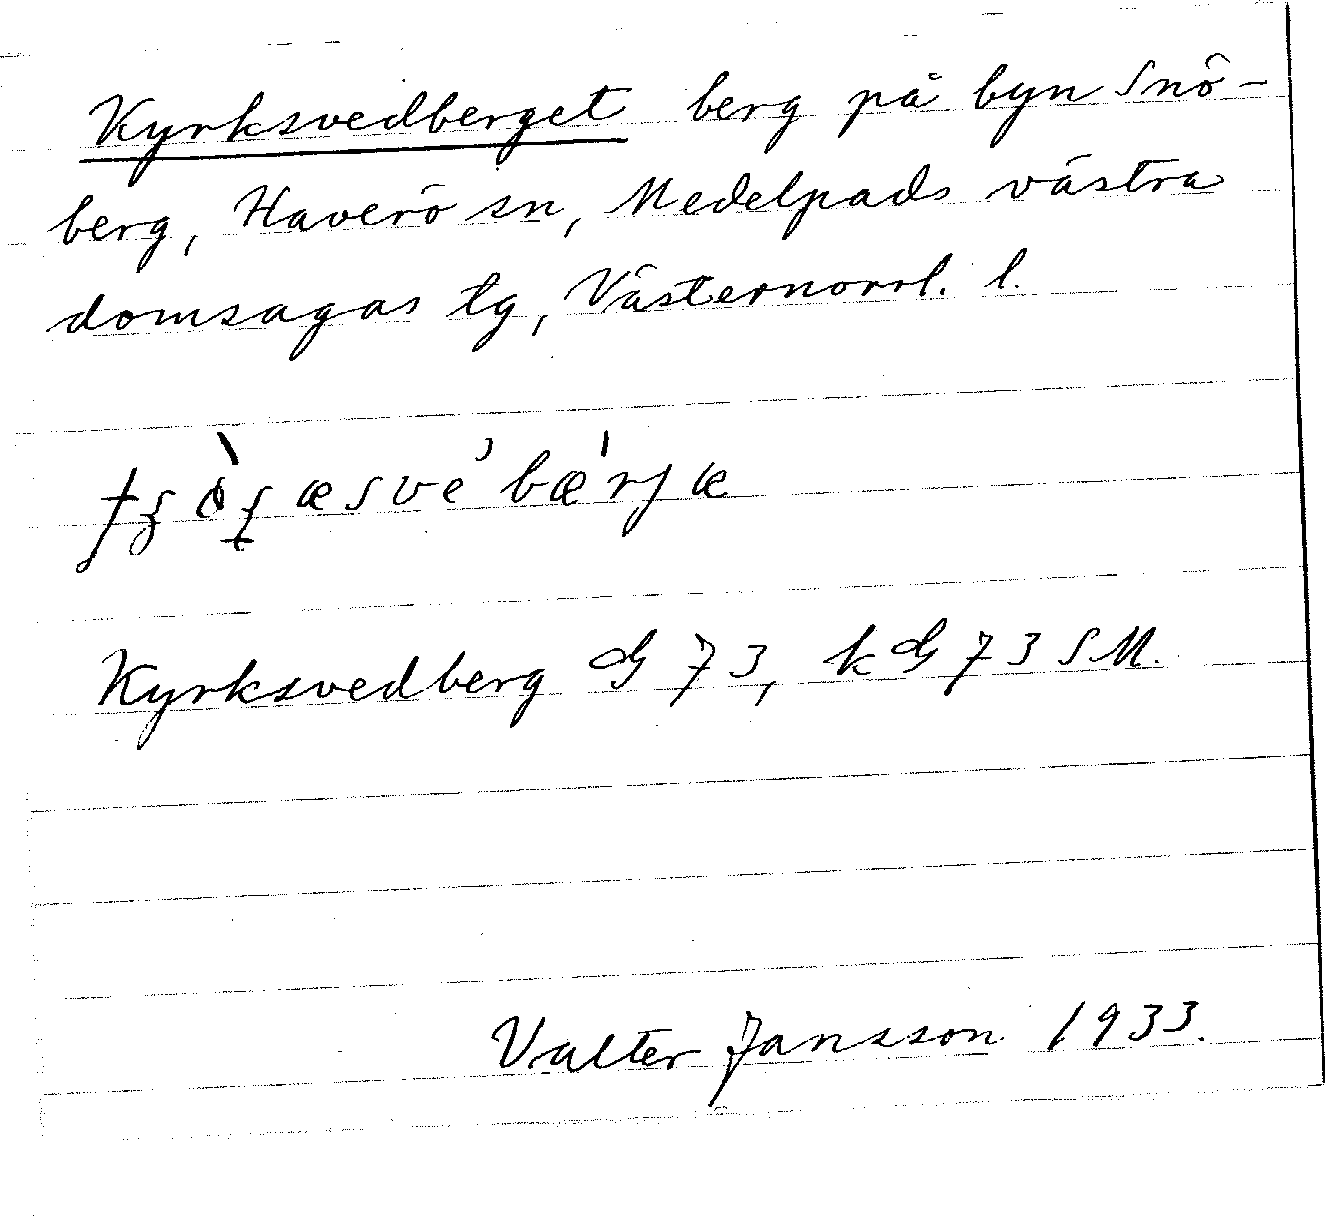 Kyrksvedberget berg på byn Snö-
berg, Haverö sn, Medelpads västra
domsagas tg, Västernorrl. l.
Kyrksvedberg G 73, k G 73 SM.
Valter Jansson 1933.